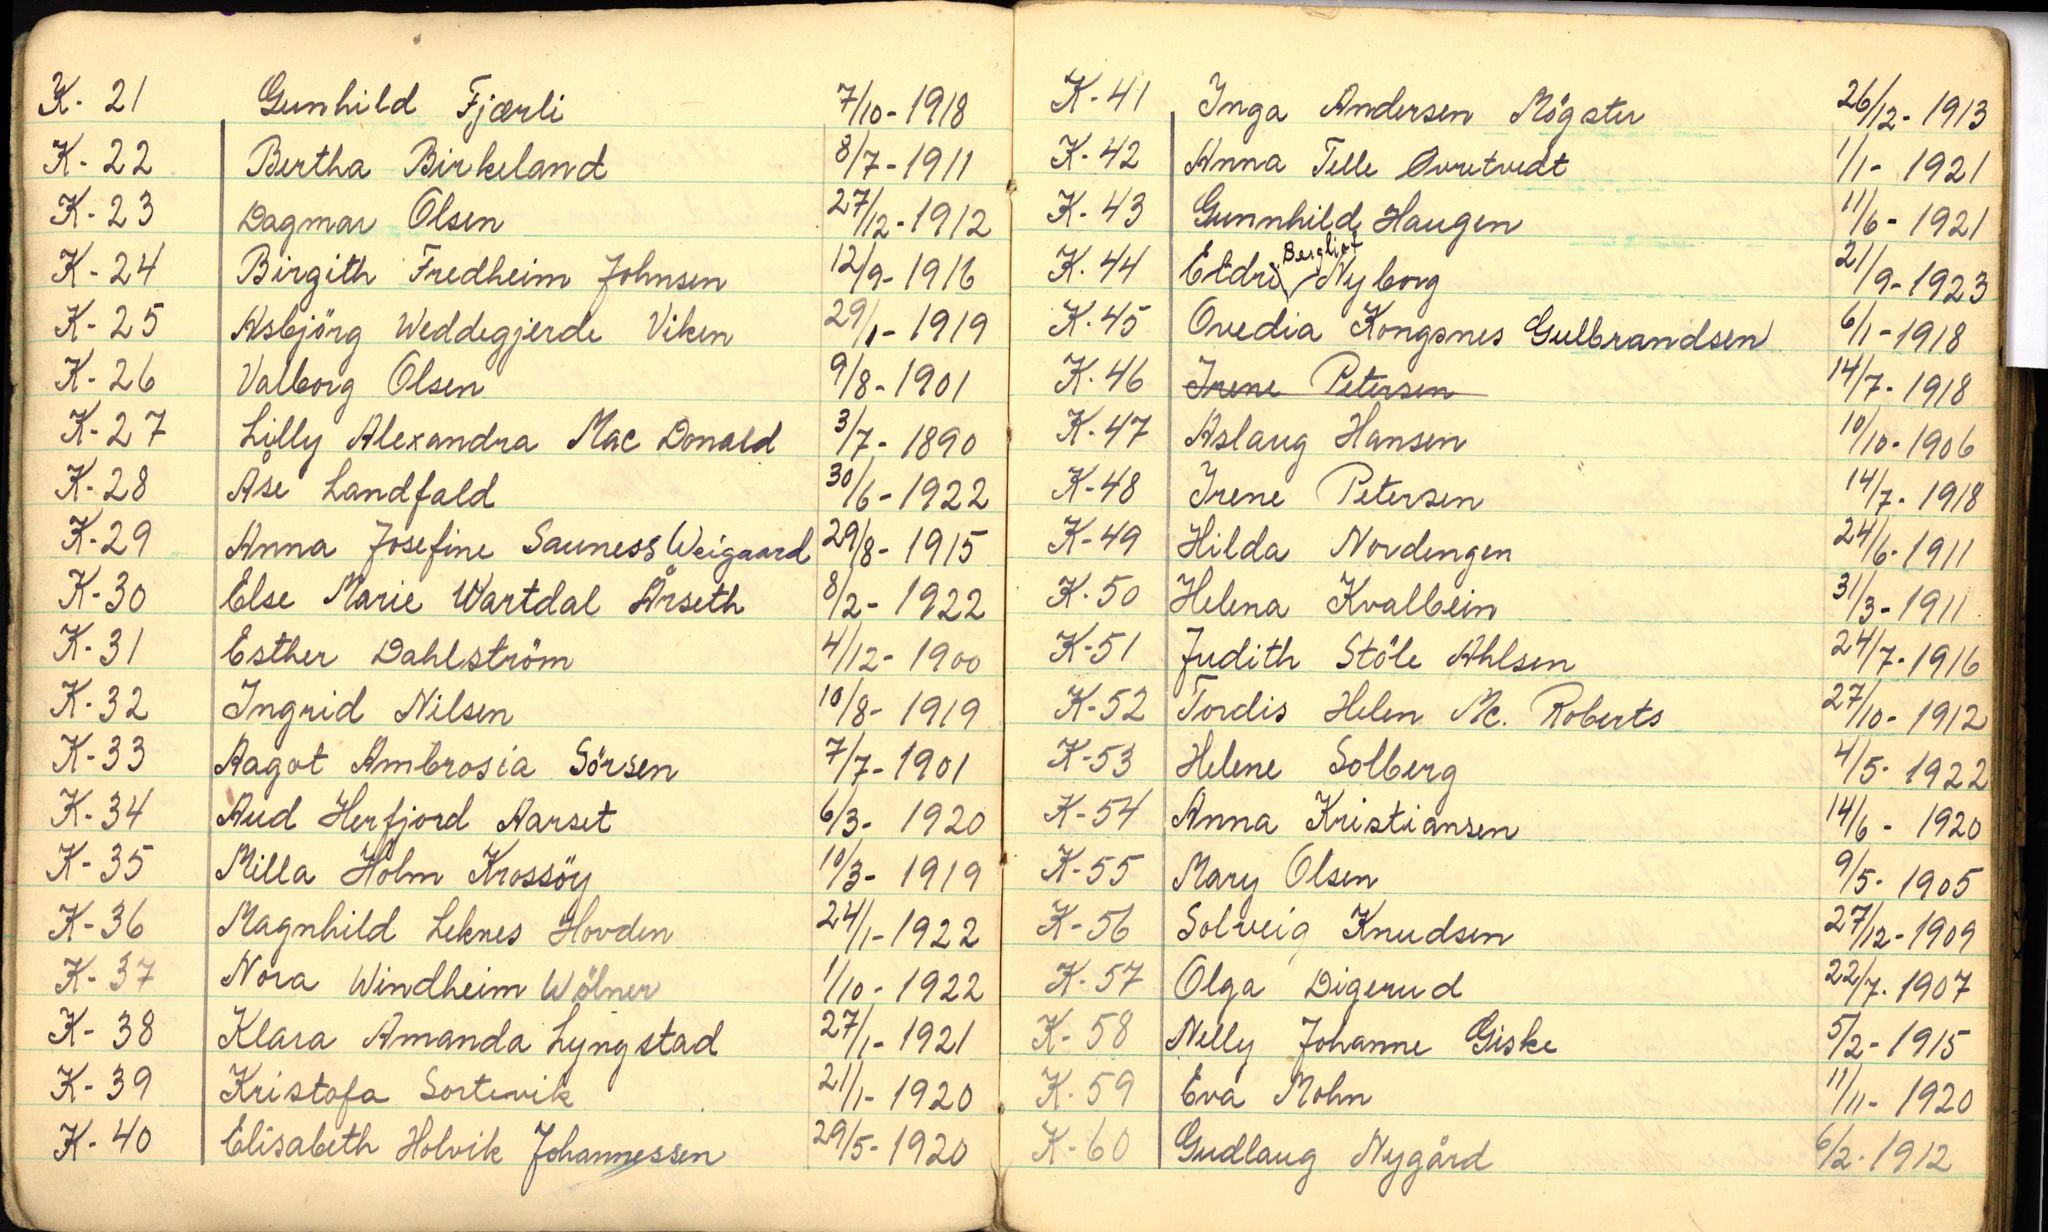 K- 21 Gunhild Fjærli 7/10- 1918
K- 22 Bertha Birkeland 8/7- 1911
K- 23 Dagmar Olsen 27/12- 1912
K- 24 Birgith Fredheim Johnsen 12/9- 1916
K- 25 Asbjörg Weddegjerde Viken 29/1- 1919
K- 26 Valborg Olsen 9/8- 1901
K- 27 Lilly Alexandra Mac Donald 3/7- 1890
K- 28 Åse Landfald 30/6- 1922
K- 29 Anna Josefine Sauness Weigaard 29/8- 1915
K- 30 Else Marie Wartdal Årseth 8/2- 1922
K- 31 Esther Dahlström 4/12- 1900
K- 32 Ingrid Nilsen 10/8- 1919
K- 33 Aagot Ambrosia Sörsen 7/7- 1901
K- 34 Aud Herfjord Aarset 6/3- 1920
K- 35 Milla Holm Krossöy 10/3- 1919
K- 36 Magnhild Leknes Hovden 24/1- 1922
K- 37 Nora Windheim Wölner 1/10- 1922
K- 38 Klara Amanda Lyngstad 27/1- 1921
K- 39 Kristofa Sortevik 21/1- 1920
K- 40 Elisabeth Holvik Johannessen 29/5- 1920
K- 41 Inga Andersen Mögster 26/12- 1913
K- 42 Anna Telle Øvretvedt 1/1- 1921
K- 43 Gunnhild Haugen 11/6- 1921
K. 44 Eldri Bergliot Nyborg 21/9- 1923
K. 45 Ovedia Kongsnes Gulbrandsen 6/1- 1918
K. 46 Irene Petersen 14/7- 1918
K- 47 Aslaug Hansen 10/10- 1906
K- 48 Irene Petersen 14/7- 1918
K- 49 Hilda Nordengen 24/6- 1911
K- 50 Helena Kvalbein 31/3- 1911
K- 51 Judith Stöle Ahlsen 24/7- 1916
K- 52 Tordis Helen Mc. Roberts 27/10- 1912
K- 53 Helene Solberg 4/5- 1922
K- 54 Anna Kristiansen 14/6- 1920
K- 55 Mary Olsen 9/5- 1905
K- 56 Solveig Knudsen 27/12- 1909
K- 57 Olga Digerud 22/7. 1907
K- 58 Nelly Johanne Giske 5/2- 1915
K- 59 Eva Mohn 11/11- 1920
K- 60 Gudlaug Nygård 6/2- 1912